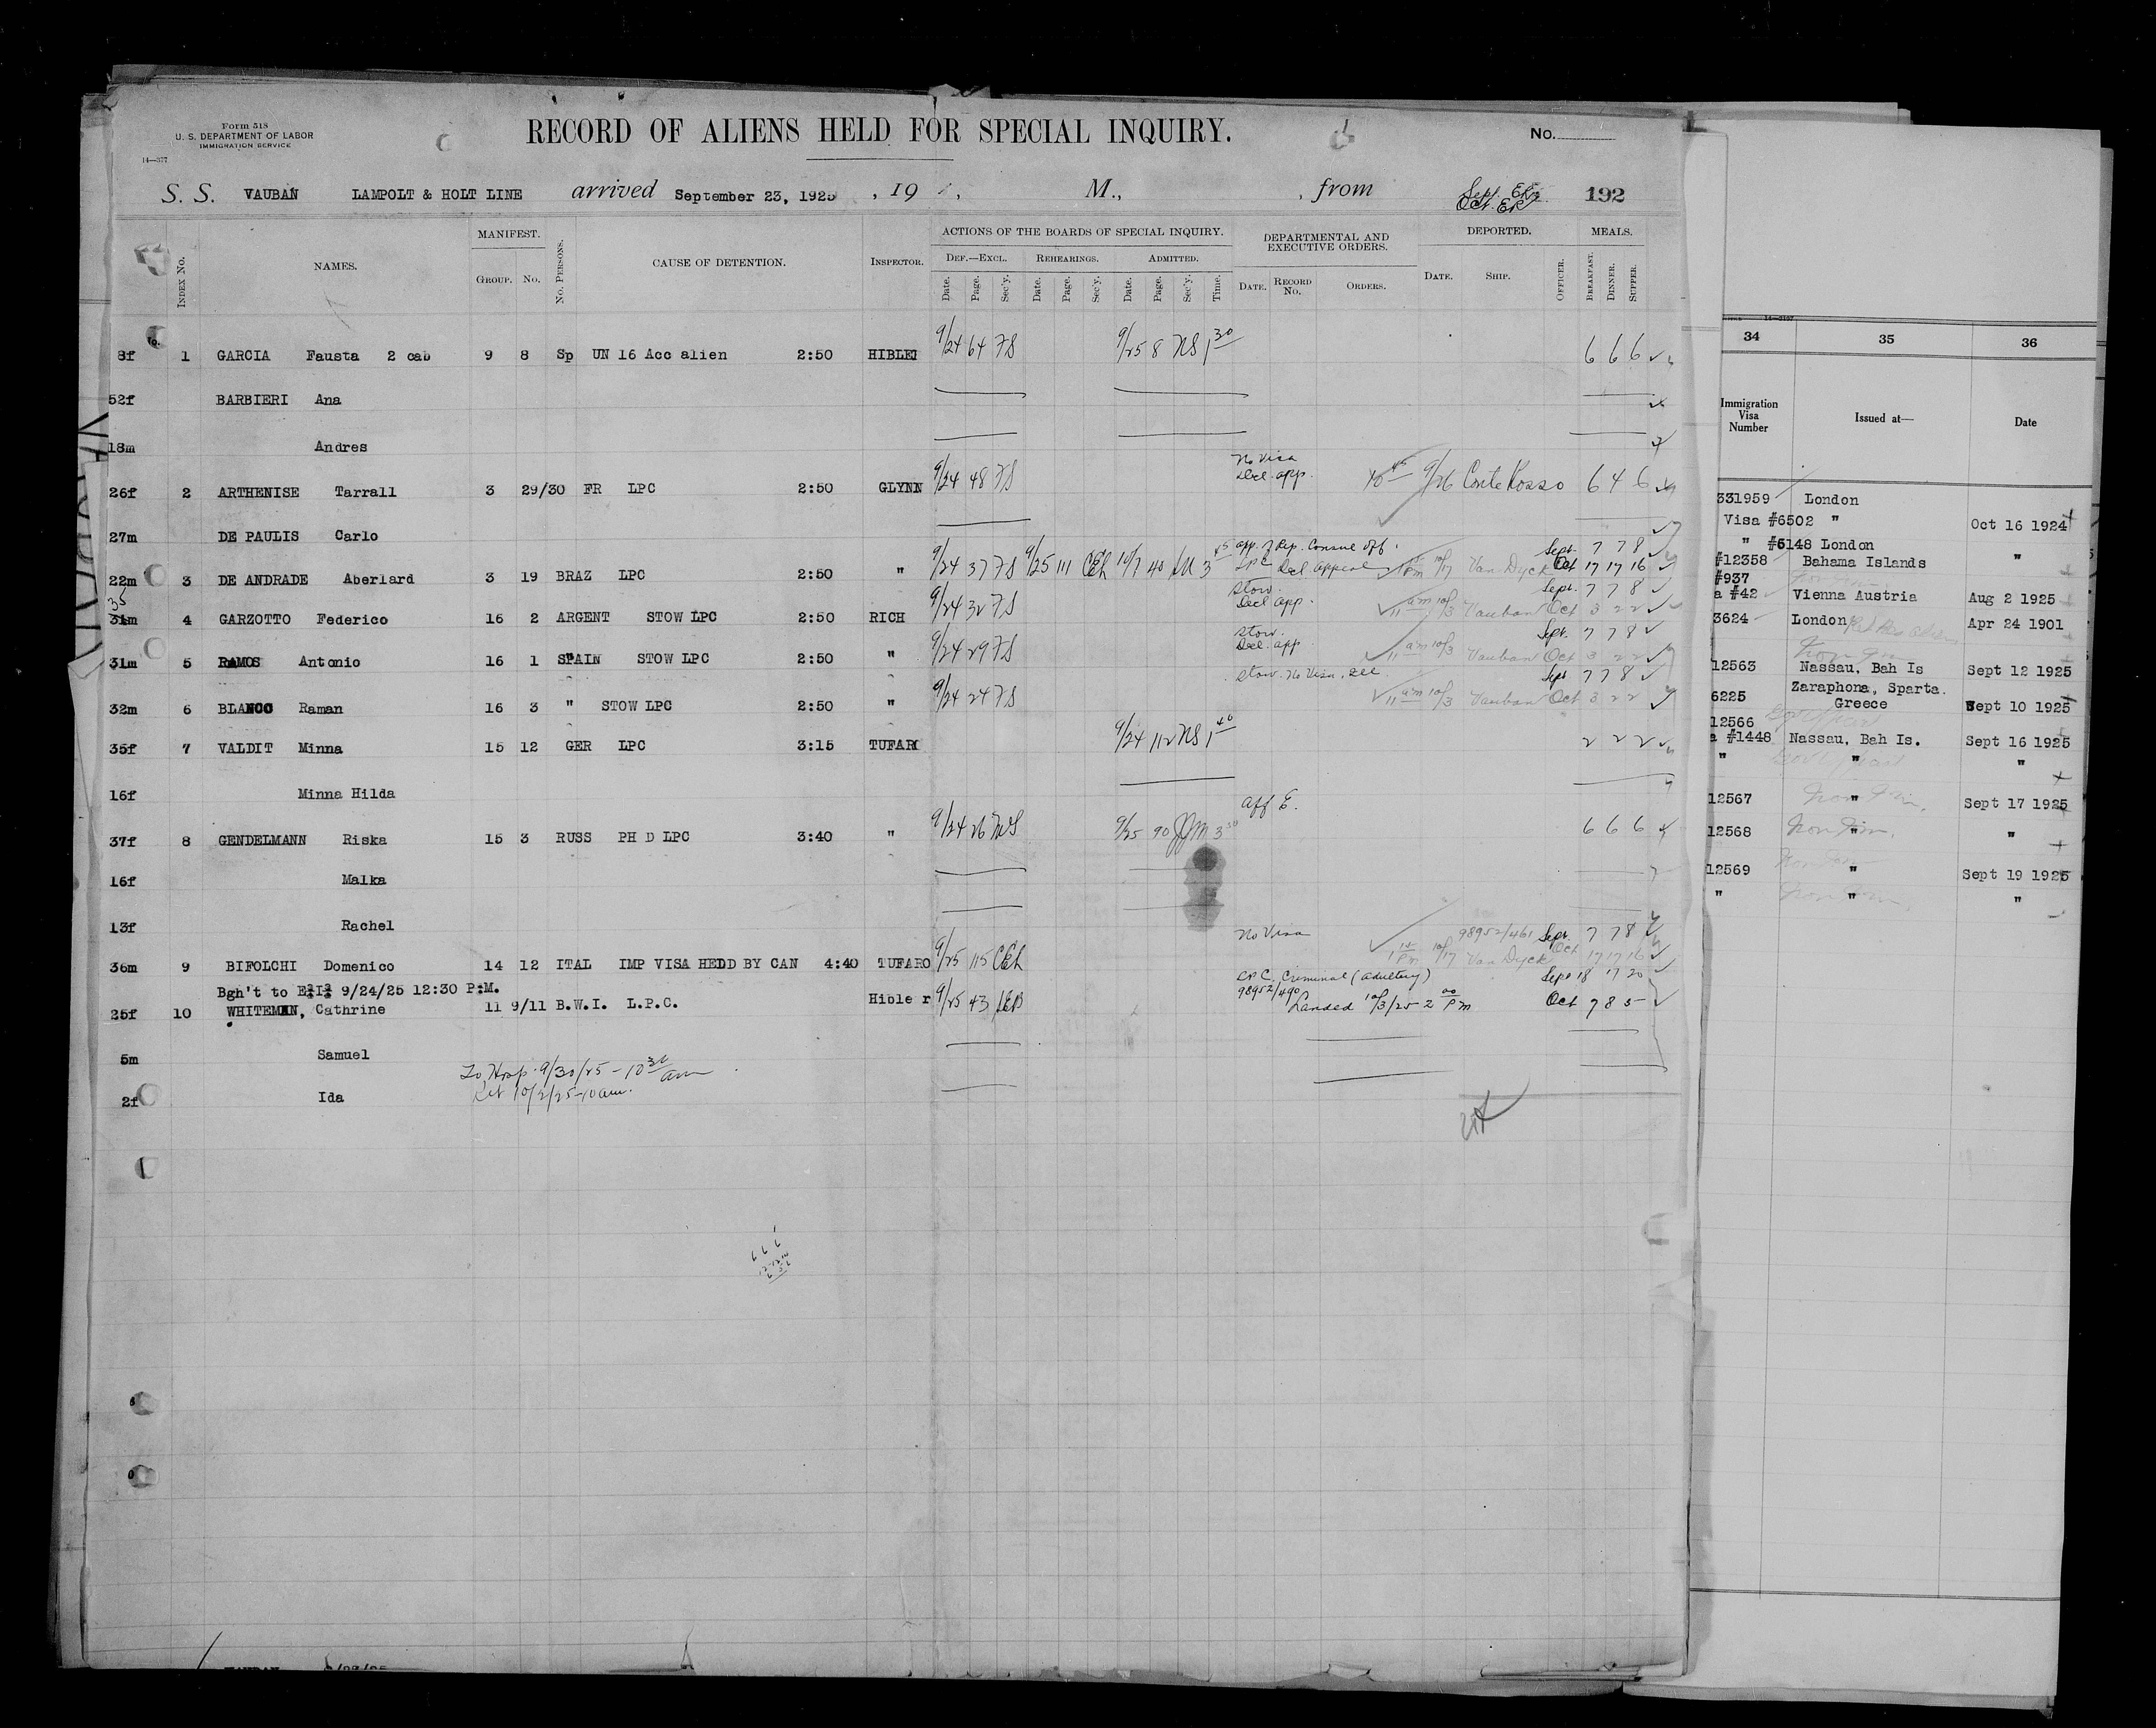 Form 518
U. S. DEPARTMENT OF LABOR
IMMIGRATION SERVICE
14—377
RECORD OF ALIENS HELD FOR SPECIAL INQUIRY.
No.
S. S. VAUBAN LAMPOLT & HOLT LINE arrived September 23, 1925 , 19 , M., , from 192
INDEX No. NAMES. MANIFEST. GROUP. No. No. PERSONS. CAUSE OF DETENTION. INSPECTOR. ACTIONS OF THE BOARDS OF SPECIAL INQUIRY. DEF.—EXCL. REHEARINGS. ADMITTED. Date. Page. Sec'y. Date. Page. Sec'y. Date. Page. Sec'y. Time. DEPARTMENTAL AND EXECUTIVE ORDERS. DATE. RECORD No. ORDERS. DEPORTED. DATE. SHIP. OFFICER. MEALS. BREAKFAST. DINNER. SUPPER.
8f 1 GARCIA Fausta 2 cab 9 8 Sp UN 16 Acc alien 2:50 9/24 64 FS 9/25 8 NS 1 30 6 6 6
52f BARBIERI Ana
18m Andres
No Visa
26f 2 ARTHENISE Tarrall 3 29/30 FR LPC 2:50 GLYNN 9/24 48 FS Decl. app. 9/26 Conte Rosso 6 4 6
27m DE PAULIS Carlo
Sept. 7 7 8
22m 3 DE ANDRADE Aberlard 3 19 BRAZ LPC 2:50 " 9/24 37 FS 9/25 111 10/7 40 LPC Decl appeal 10/17 Van Dyck Oct 17 17 16
Stow. Sept. 7 7 8
4 GARZOTTO Federico 16 2 ARGENT STOW LPC 2:50 RICH 9/24 32 FS Decl app. 11 am 10/3 Vauban Oct 3 2 2
Stow. Sept. 7 7 8
31m 5 RAMOS Antonio 16 1 SPAIN STOW LPC 2:50 " 9/24 29 FS Decl. app 11 am 10/3 Vauban Oct 3 2 2
Stow. No Visa, Sept 7 7 8
32m 6 BLANCO Raman 16 3 " STOW LPC 2:50 " 9/24 24 FS 11 am 10/3 Vauban Oct 3 2 2
35f 7 VALDIT Minna 15 12 GER LPC 3:15 TUFARO 9/24 112 NS 1 40 2 2 2
16f Minna Hilda
37f 8 GENDELMANN Riska 15 3 RUSS PH D LPC 3:40 " 9/24 26 NS 9/25 90 6 6 6
16f Malka
13f Rachel
No Visa 98952/461 Sept. 7 7 8
36m 9 BIFOLCHI Domenico 14 12 ITAL IMP VISA HELD BY CAN 4:40 TUFARO 9/25 115 10/17 Van Dyck Oct 17 17 16
Bgh't to 9/24/25 12:30 P.M. LPC, Criminal (adultery) Sept 18 17 20
25f 10 WHITEMAN, Cathrine 11 9/11 B.W.I. L.P.C. Hible r 9/25 43 98952/490 Landed 10/3/25 2 00 Pm Oct 7 8 5
5m Samuel
To Hosp. 9/30/25 - 10 30 am
2f Ida
Ret 10/2/25 - 10 am.
34 35 36
Immigration Visa Number Issued at— Date
331959 London
Visa #6502 " Oct 16 1924
" #6148 London "
#12358 Bahama Islands
#937
a #42 Vienna Austria Aug 2 1925
3624 London Apr 24 1901
12563 Nassau, Bah Is Sept 12 1925
6225 Zaraphona, Sparta. Greece Sept 10 1925
12566
a #1448 Nassau, Bah Is. Sept 16 1925
" " "
12567 " Sept 17 1925
12568 " "
12569 " Sept 19 1925
" " "